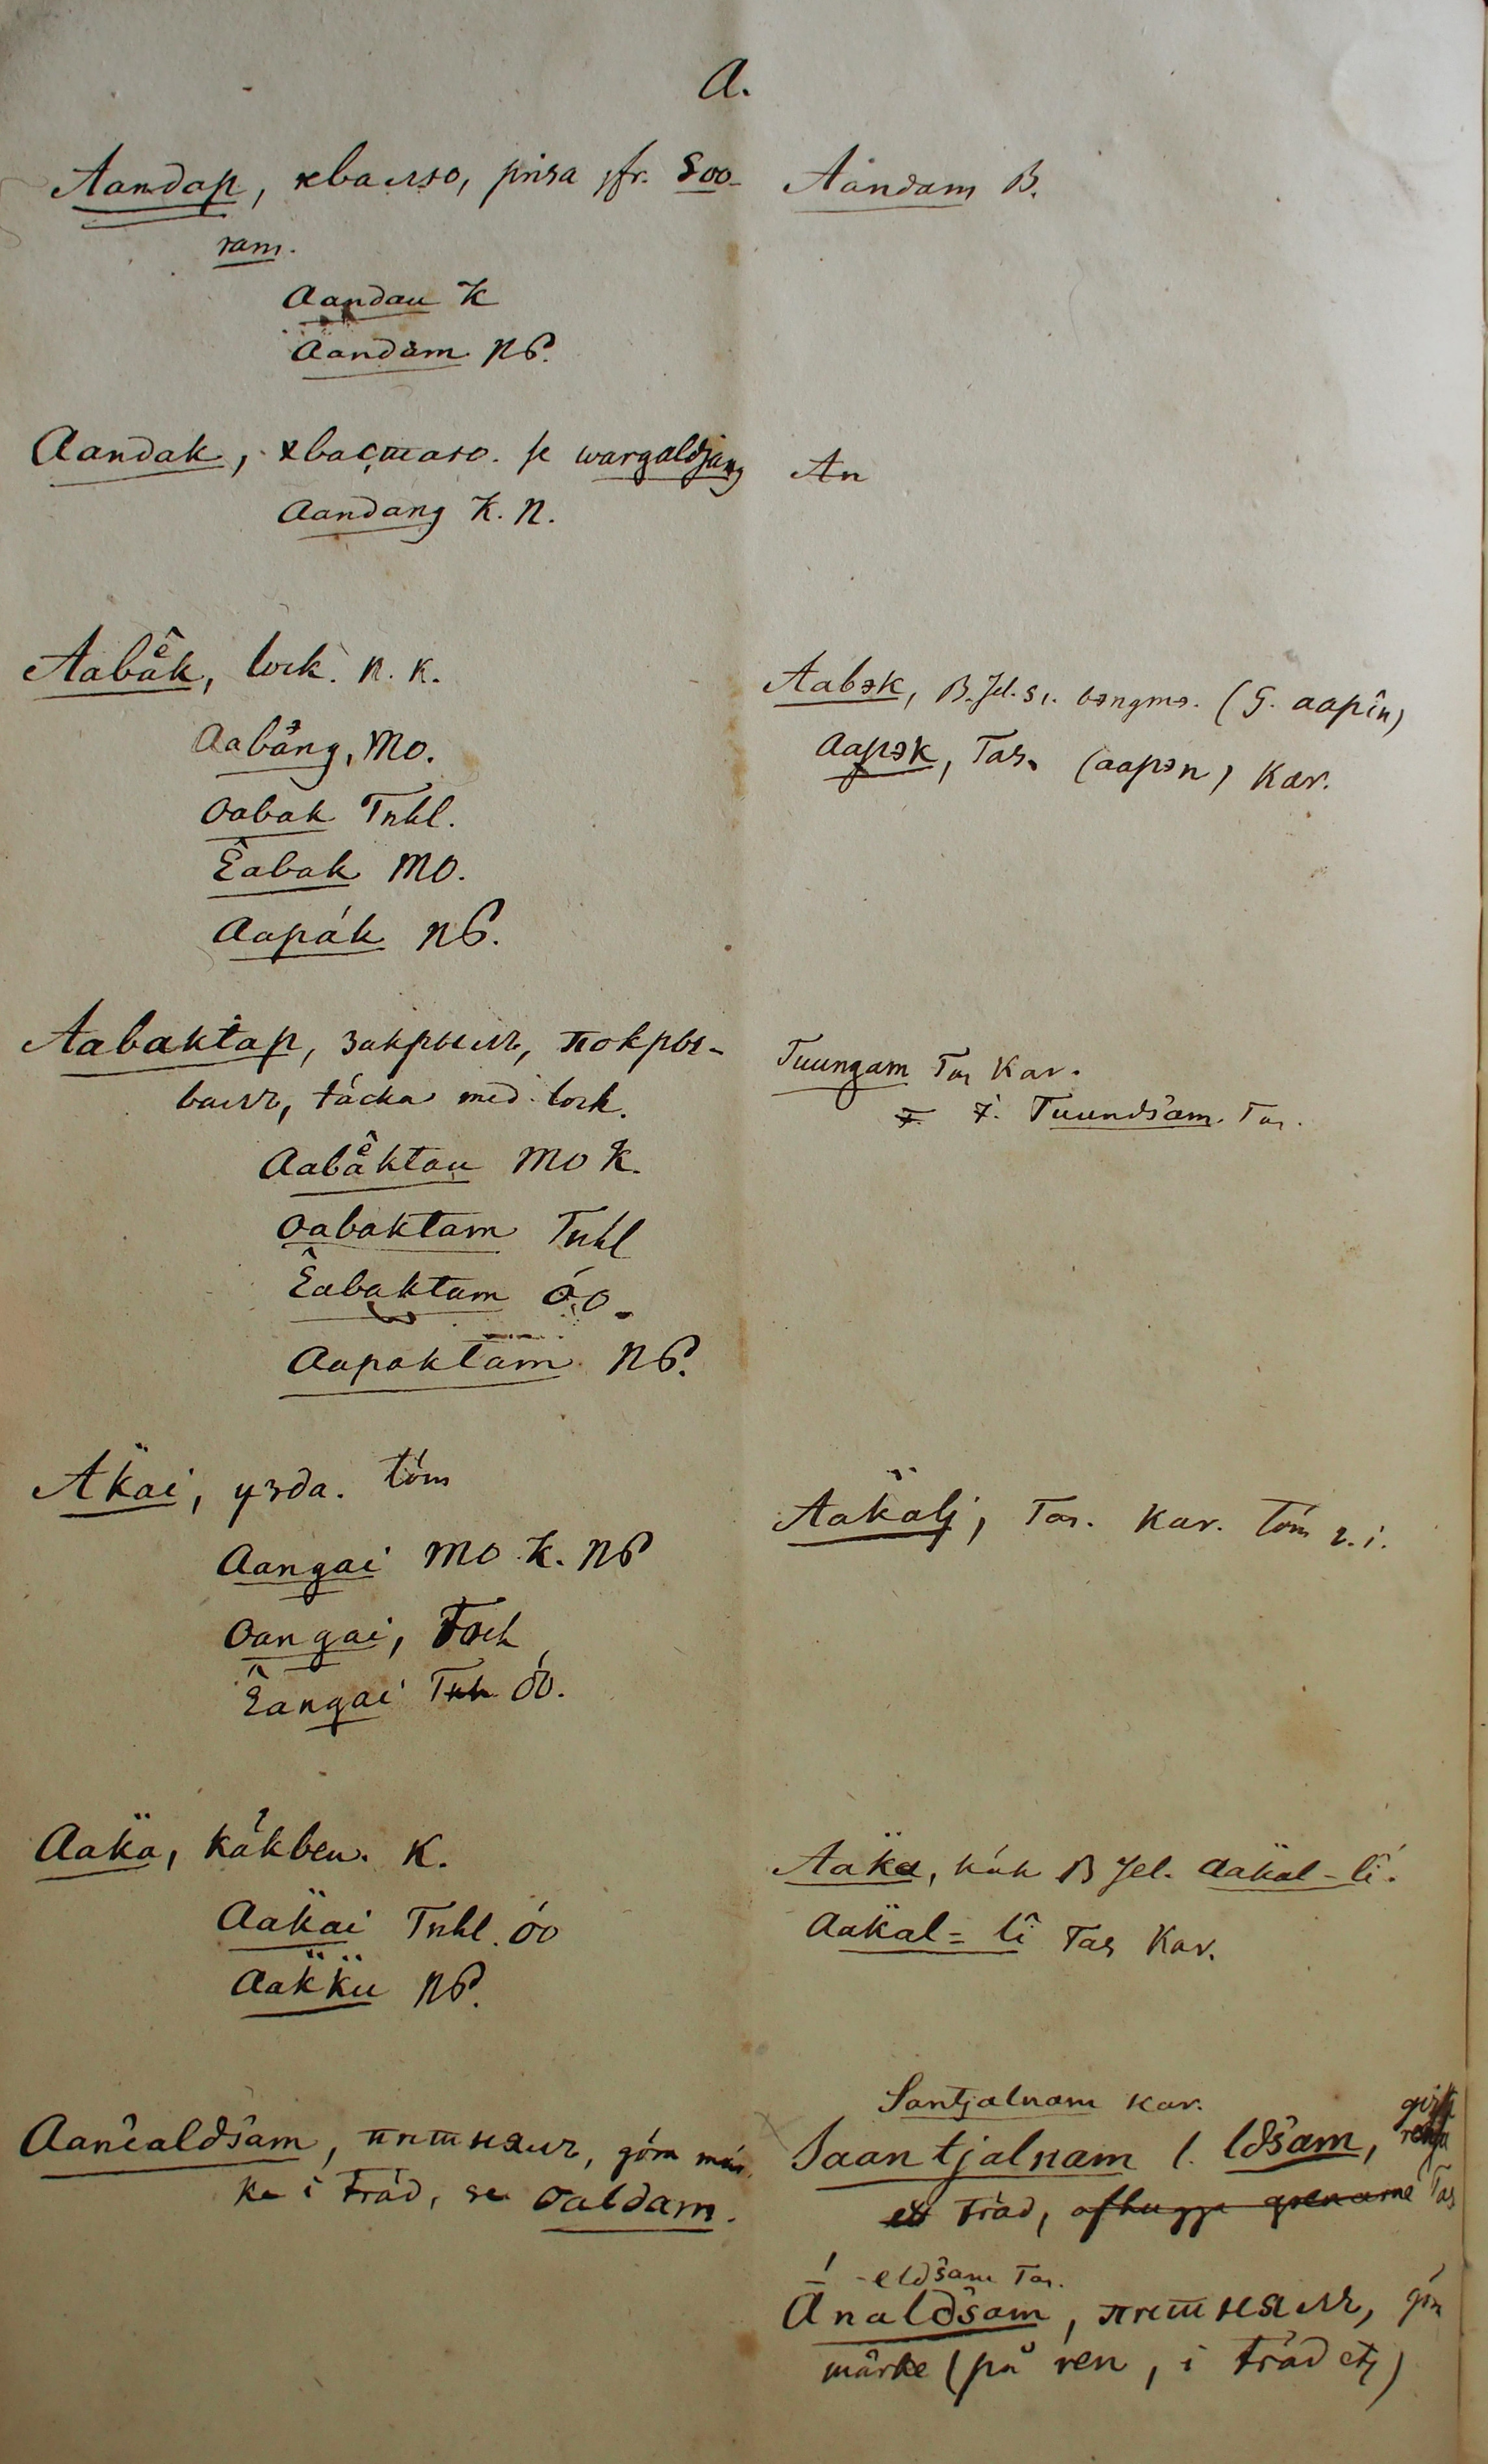 A.
Aandap, хвалю, prisa jfr. Soo-
ram.
Aandau K
Äandam NP.
Aandam B.
Aandak, хвастаю. se wargaldjang
Aandang K. N.
An
Aabåk, lock. N. K.
Aabång, MO.
Oabak Tshl.
Êabak MO.
Aapák NP.
Aabək, B. Jel. (G. aapîn)
Aapək, Tas. (aapən) Kar.
Aabaktap, закрыть, покры-
вать, täcka med lock.
Aabåktau MO K.
Oabaktam Tshl
Êabaktam ÓO.
Aapaktam NP.
Tuungam Tas Kar.
F. F. Tuundšam. Tas.
AK̈ai, узда. töm
Aangai MO. K. NP
Oangai, Tsch
Êangai Tsh ÓO.
Aak̈alj, Tas. Kar. töm
Aak̈a, käkben. K.
Aak̈ai Tshl. ÓO
Aak̈k̈u NP.
Aak̈a, käk B Jel. aak̈al-lî.
Aak̈al-lî Tas Kar.
Aanêaldšam, пятнать, göra mär-
ke i träd, se oaldam.
Santjalnam Kar.
Saantjalnam l. ldšam,
träd, afhugga grenarne Tas
-eldšam Tas.
Ânaldšam, пятнать, göra
märke (på ren, i träd etc)